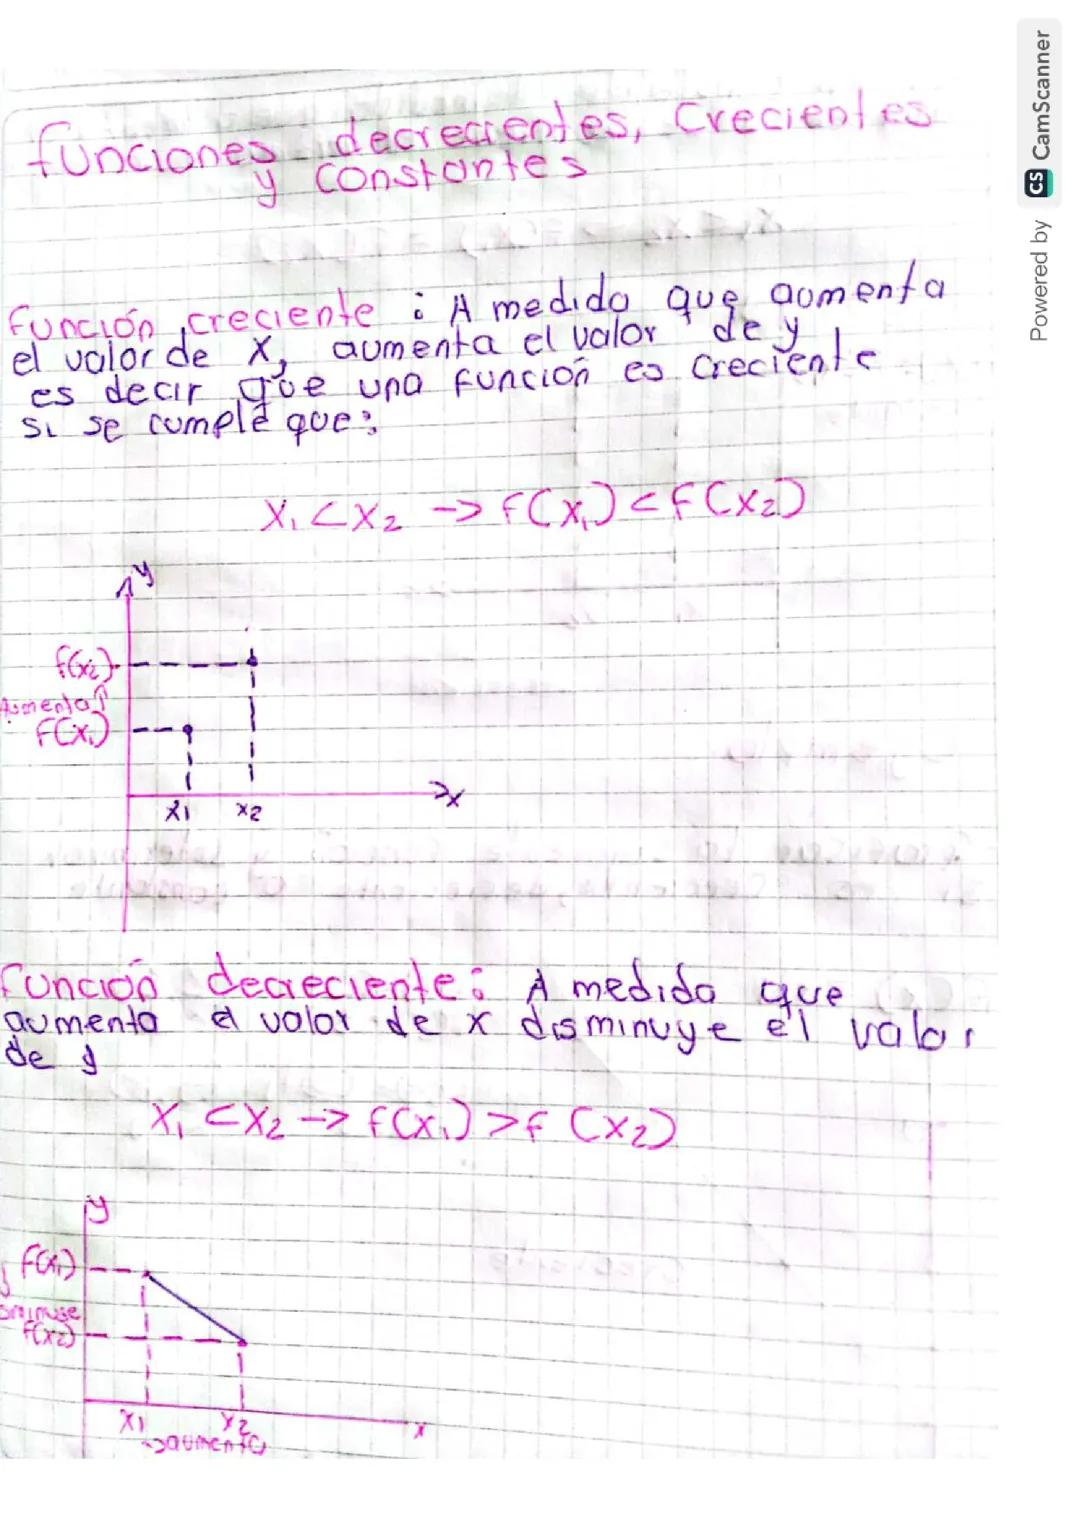 funciones decrecientes, Crecientes
y constantes
Función creciente : A medida que aumenta
el valor de x, aumenta el valor de y
es decir que una función es creciente
si se cumple que:
x₁ < x₂ -> f(x₁) < f(x₂)
y
f(x₂)
Aumenta↑
f(x₁)
x₁ x₂
x
Función decreciente: A medida que
aumenta el valor de x disminuye el valor
de y
x₁ < x₂ -> f(x₁) > f (x₂)
y
f(x₁)
f(x₂)
x₁ x₂
x
->aumenta
Powered by CS CamScanner